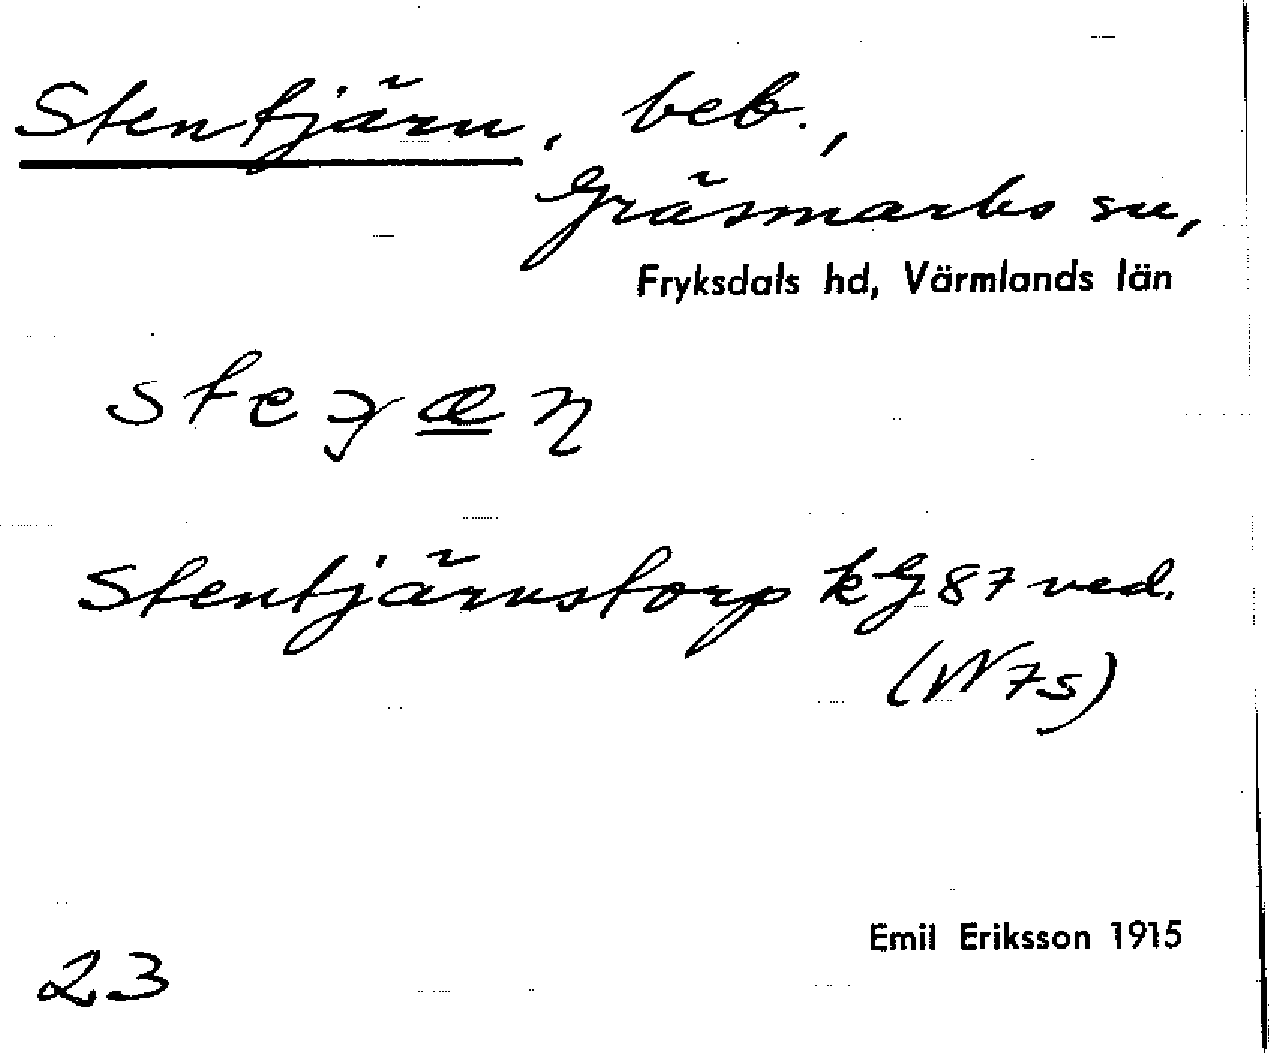 Stentjärn, beb.,
Gräsmarks sn,
Fryksdals hd, Värmlands län
Stentjärnstorp kG 87 ved.
(W 7s)
Emil Eriksson 1915
23